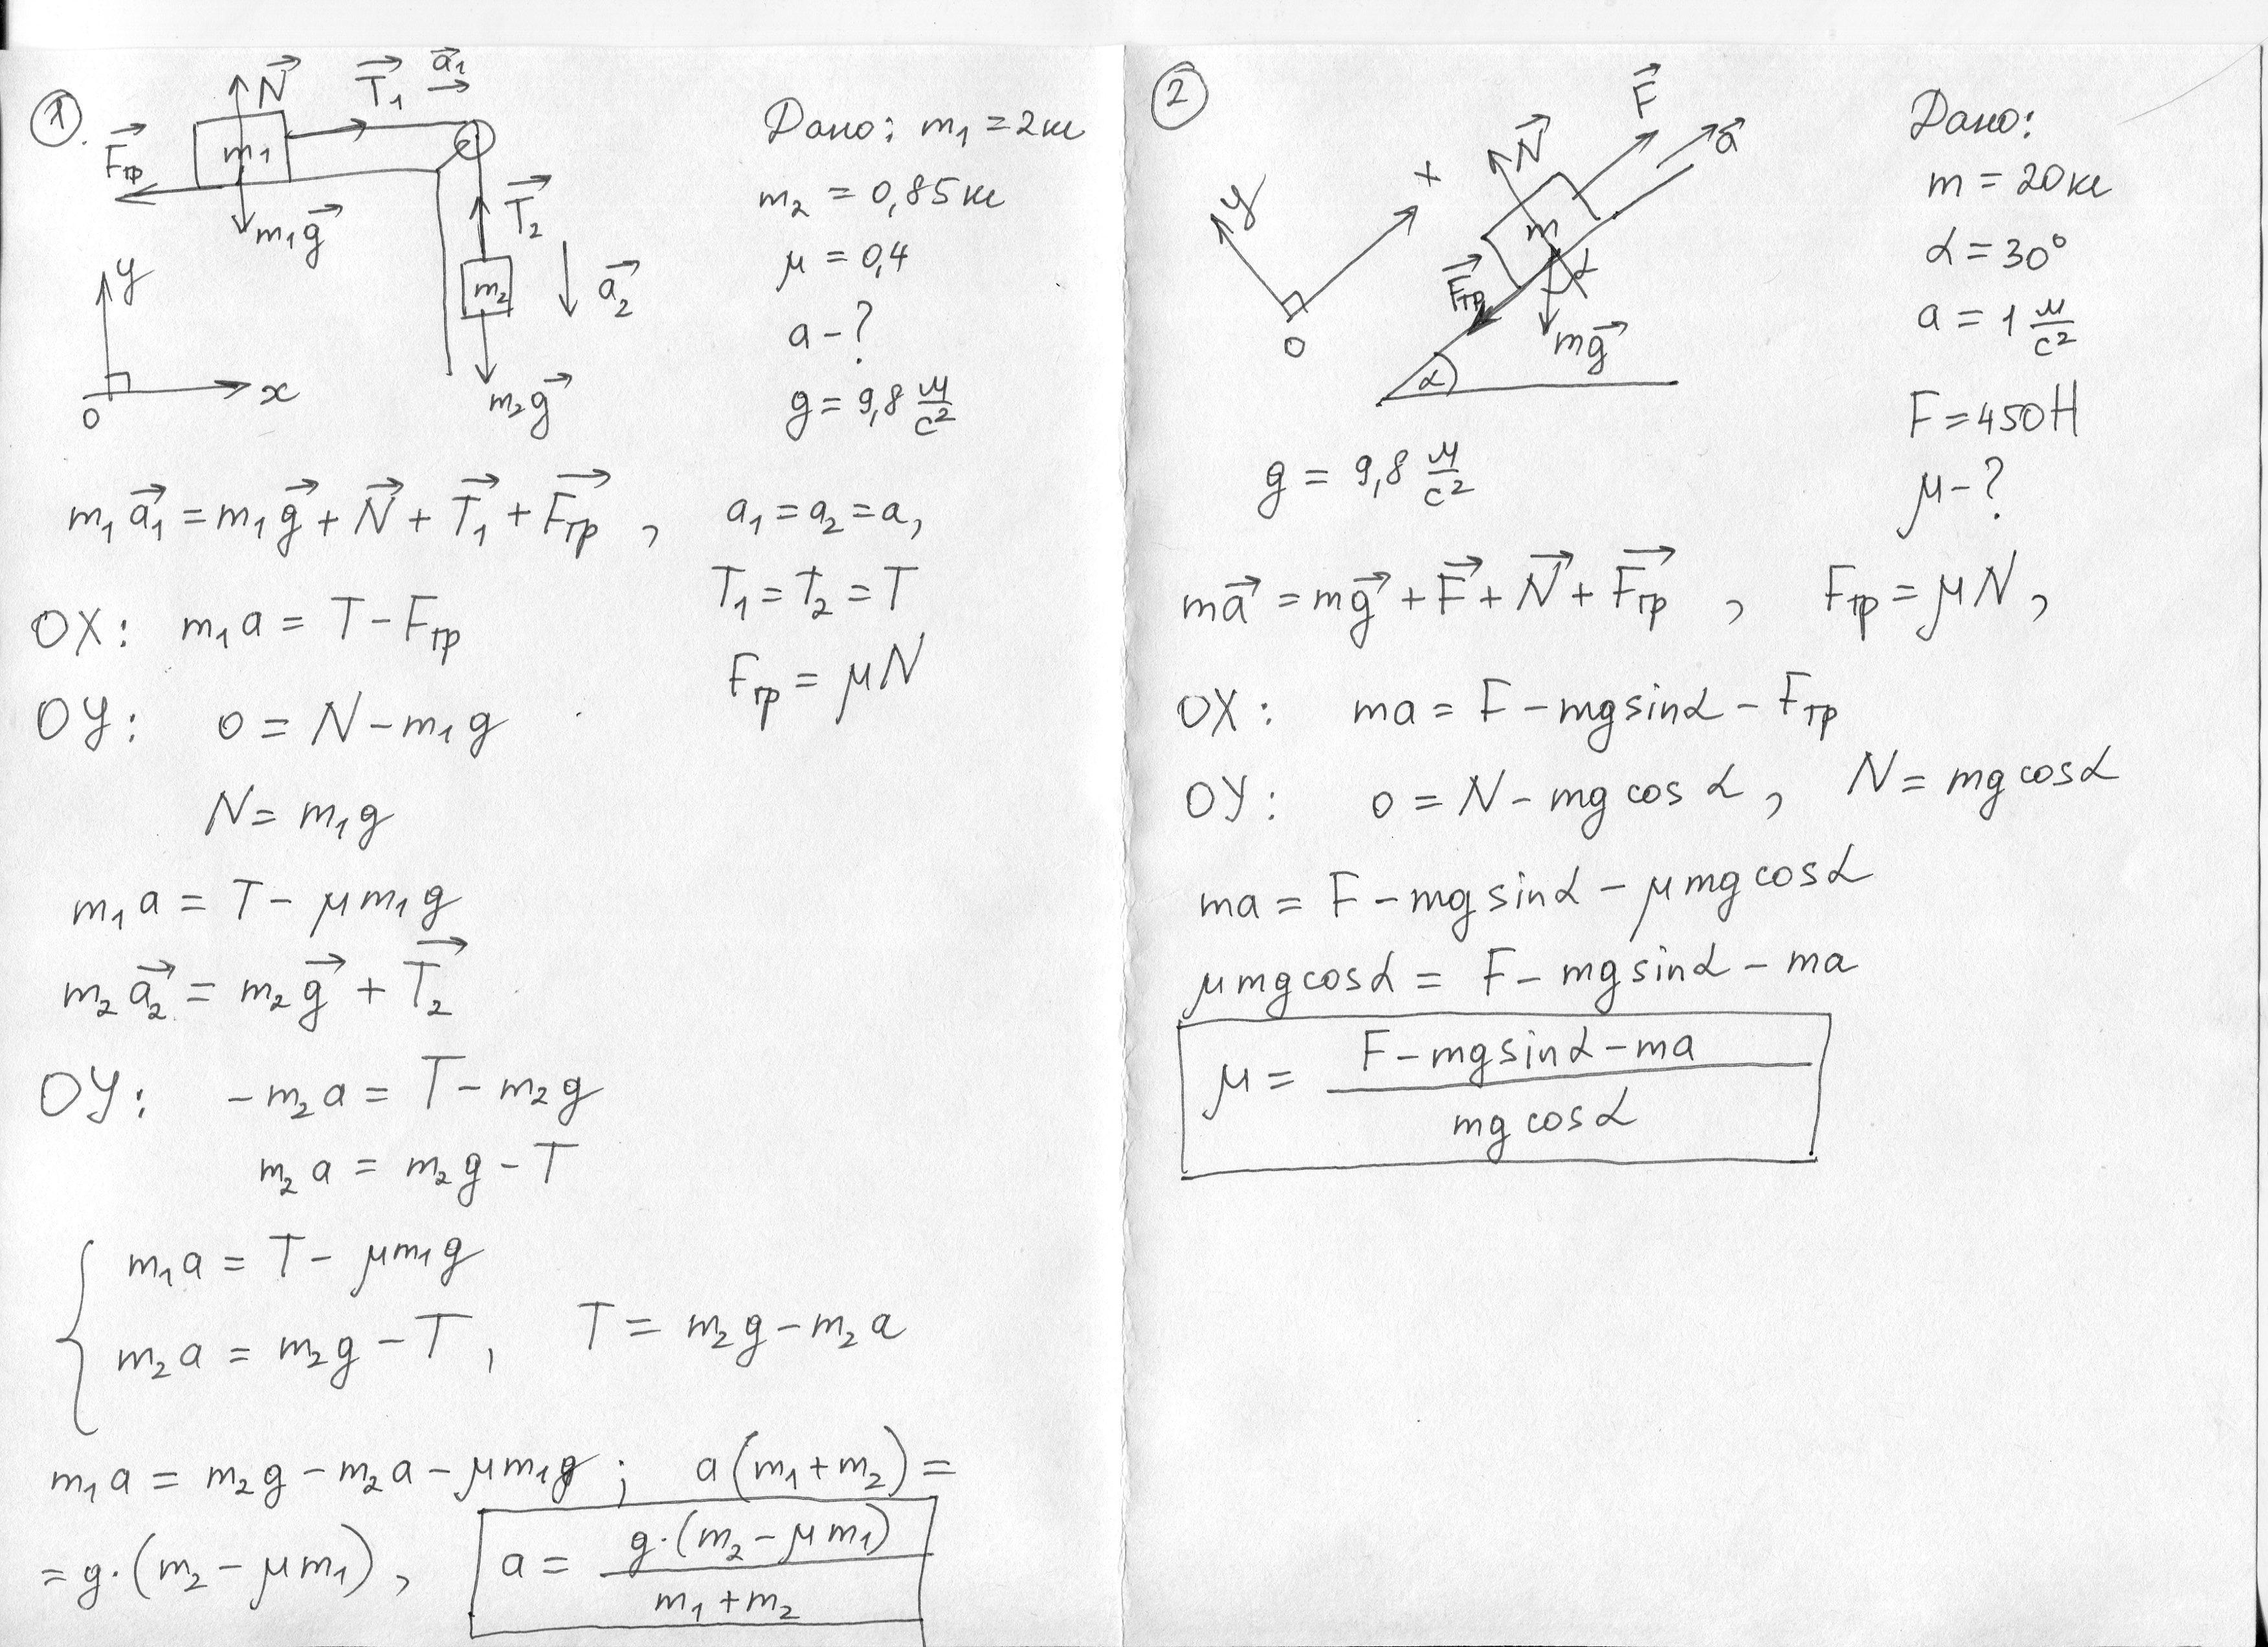 1.
N⃗ T₁⃗ a₁⃗
Fтр⃗ m₁
m₁g⃗
T₂⃗
m₂ a₂⃗
m₂g⃗
y
0 x
Дано: m₁ = 2кг
m₂ = 0,85кг
μ = 0,4
a - ?
g = 9,8 м/с²
m₁a₁⃗ = m₁g⃗ + N⃗ + T₁⃗ + Fтр⃗ , a₁ = a₂ = a,
T₁ = T₂ = T
OX: m₁a = T - Fтр
Fтр = μN
OY: 0 = N - m₁g
N = m₁g
m₁a = T - μm₁g
m₂a₂⃗ = m₂g⃗ + T₂⃗
OY: -m₂a = T - m₂g
m₂a = m₂g - T
{ m₁a = T - μm₁g
m₂a = m₂g - T , T = m₂g - m₂a
m₁a = m₂g - m₂a - μm₁g ; a(m₁+m₂) =
= g·(m₂ - μm₁) , a = g·(m₂ - μm₁) / m₁+m₂
2
y x 0
N⃗ F⃗ a⃗
m α
Fтр⃗
mg⃗
α
Дано:
m = 20кг
α = 30°
a = 1 м/с²
F = 450Н
μ - ?
g = 9,8 м/с²
ma⃗ = mg⃗ + F⃗ + N⃗ + Fтр⃗ , Fтр = μN,
OX: ma = F - mg sinα - Fтр
OY: 0 = N - mg cos α , N = mg cosα
ma = F - mg sinα - μmg cosα
μmg cosα = F - mg sinα - ma
μ = F - mg sinα - ma / mg cosα